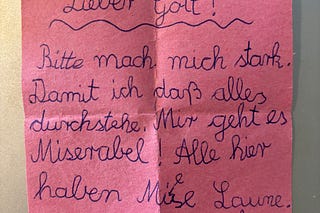 Lieber Gott!
Bitte mach mich stark.
Damit ich daß alles
durchstehe. Mir geht es
Miserabel! Alle hier
haben Miese Laune.